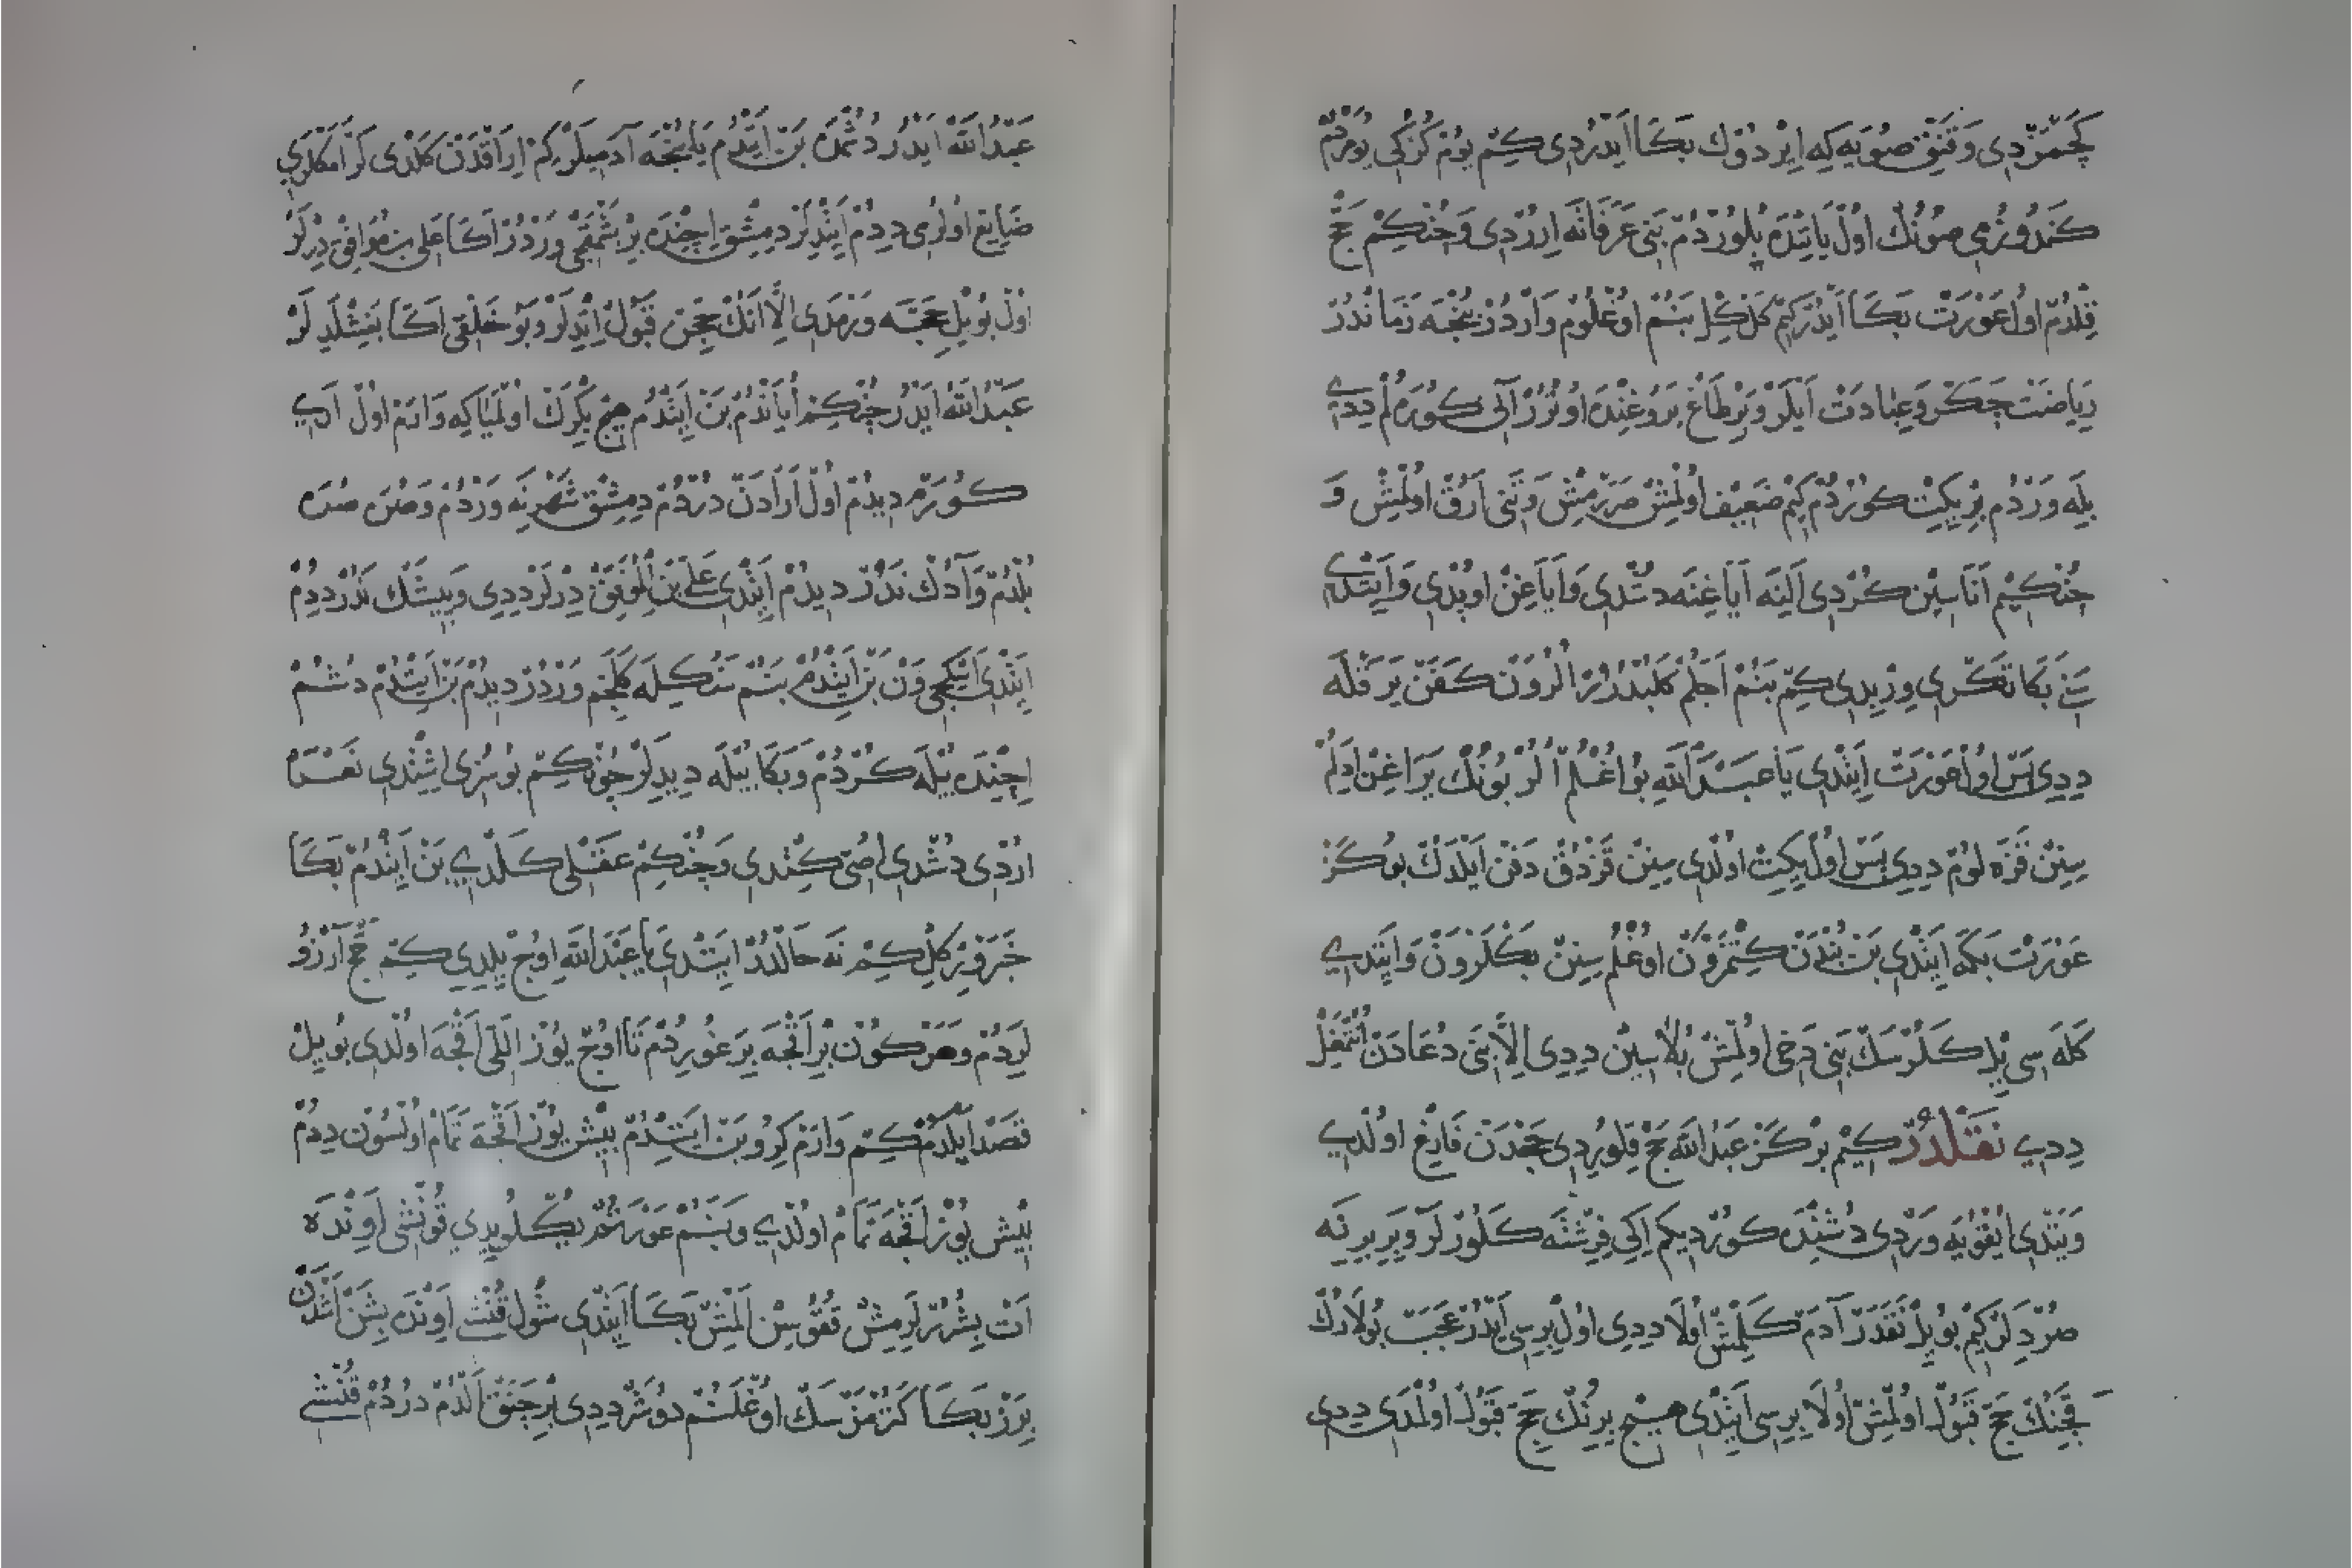 كچمزدی وقتنق صویه که ایردوك بكا ایدردی كم یوم كزكی یومردم
كندوزمی صونك اول یاننده بلوردم بنی عرفاته اررّدی وچنكم حج
قلدم اول عورت بكا ایدر كم كل كل بنم اوغلوم واردر نیجه زماندر
ریاضت چكر وعبادت ایلر وبر طاغ بروغنده اوتورر آنی كوره لم ددی
بله وردم بر یكت كوردم كم ضعیف اولمش صررمش و تنی ارق اولمش و
چنكیم اناسین كردی الینه ایاغنه دشدی وایاغن اوپدی وایتدی
سنی بكا تكری ویربدی كم بنم اجلم كلبدرر الرون كفن یرقله
ددی پس اول عورت ایتدی یا عبد الله بو اغلم الر بونك یراغن ایدلم
سینن قزه لوم ددی پس اول یكت اولدی سینن قزدق دفن ایلدك بو كز
عورت بكه ایتدی بن بندن كتمزون اوغلم سینن بكلرون وایتدی
كله سی ییل كلورسك بنی دخی اولمش بولاسین ددی الا بنی دعادن انتمغل
ددی نقلدر كیم بر كز عبد الله حج قلوردی حجدن فارغ اولدی
ویتدی ایقویه وردی دشنده كوردیكم ایكی فرشته كلورلر ویر برنه
صردلر كیم بو ییل نقدر آدم كلمش اولا ددی اول برسی ایدر عجب بولاردك
قچنك حج قبول اولمش اولا برسی ایتدی هیچ برنك حج قبول اولمدی ددی
عبد الله ایدر دشمده بن ایتدم یا نیجه آدمیلر كم ایراقدن كلدی كز امكلری
ضایع اولرمی ددم ایتدیلر دمشق ایچنده بر بشمقجی وردر اكا علی بن موافق درلر
اول بو ییل حجه ورمدی الا انك حجن قبول ایتدیلر وبو خلقی اكا بغشلدیلر
عبد الله ایدر چنكم اویاندم بن ایتدم هیچ یكرك اولمیا كه وارم اول اری
كورم دیدم اول ارادن دردم دمشق شهرینه وردم وصره صره
بلدم وآدك ندر دیدم ایتدی علی بن الموفق درلر ددی وپیشك ندر ددم
ایتدی اتكجی ون بن ایتدم بنم سنكله كلجم وردر دیدم بن ایتدم دشم
اچنده بیله كردم وبكا بیله دیدیلر چونكم بو سزی اشتدی نعره
اردی دشدی اصی كتدی وچنكم عقلی كلدی بن ایتدم بكا
خبر ویركل كم نه حالدر ایتدی یا عبد الله اوچ ییلدی كم حج آرزو
لردم وهر كون بر اقجه یرغوردم تا اوچ یوز اللی اقجه اولدی بو ییل
قصد ایلدم كم وارم كرو بن ایتدم بیش یوز اقجه تمام اولسون ددم
بیش یوز اقجه تمام اولدی وبنم عورتم یكلویدی قونشی اونده
ات بشررلرمش ققوسن المش بكا ایتدی شول قنشی اونده بشن اتدن
برز بكا كترمزسك اوغلنم دوشر ددی بر چنق الدم دردم قنشی